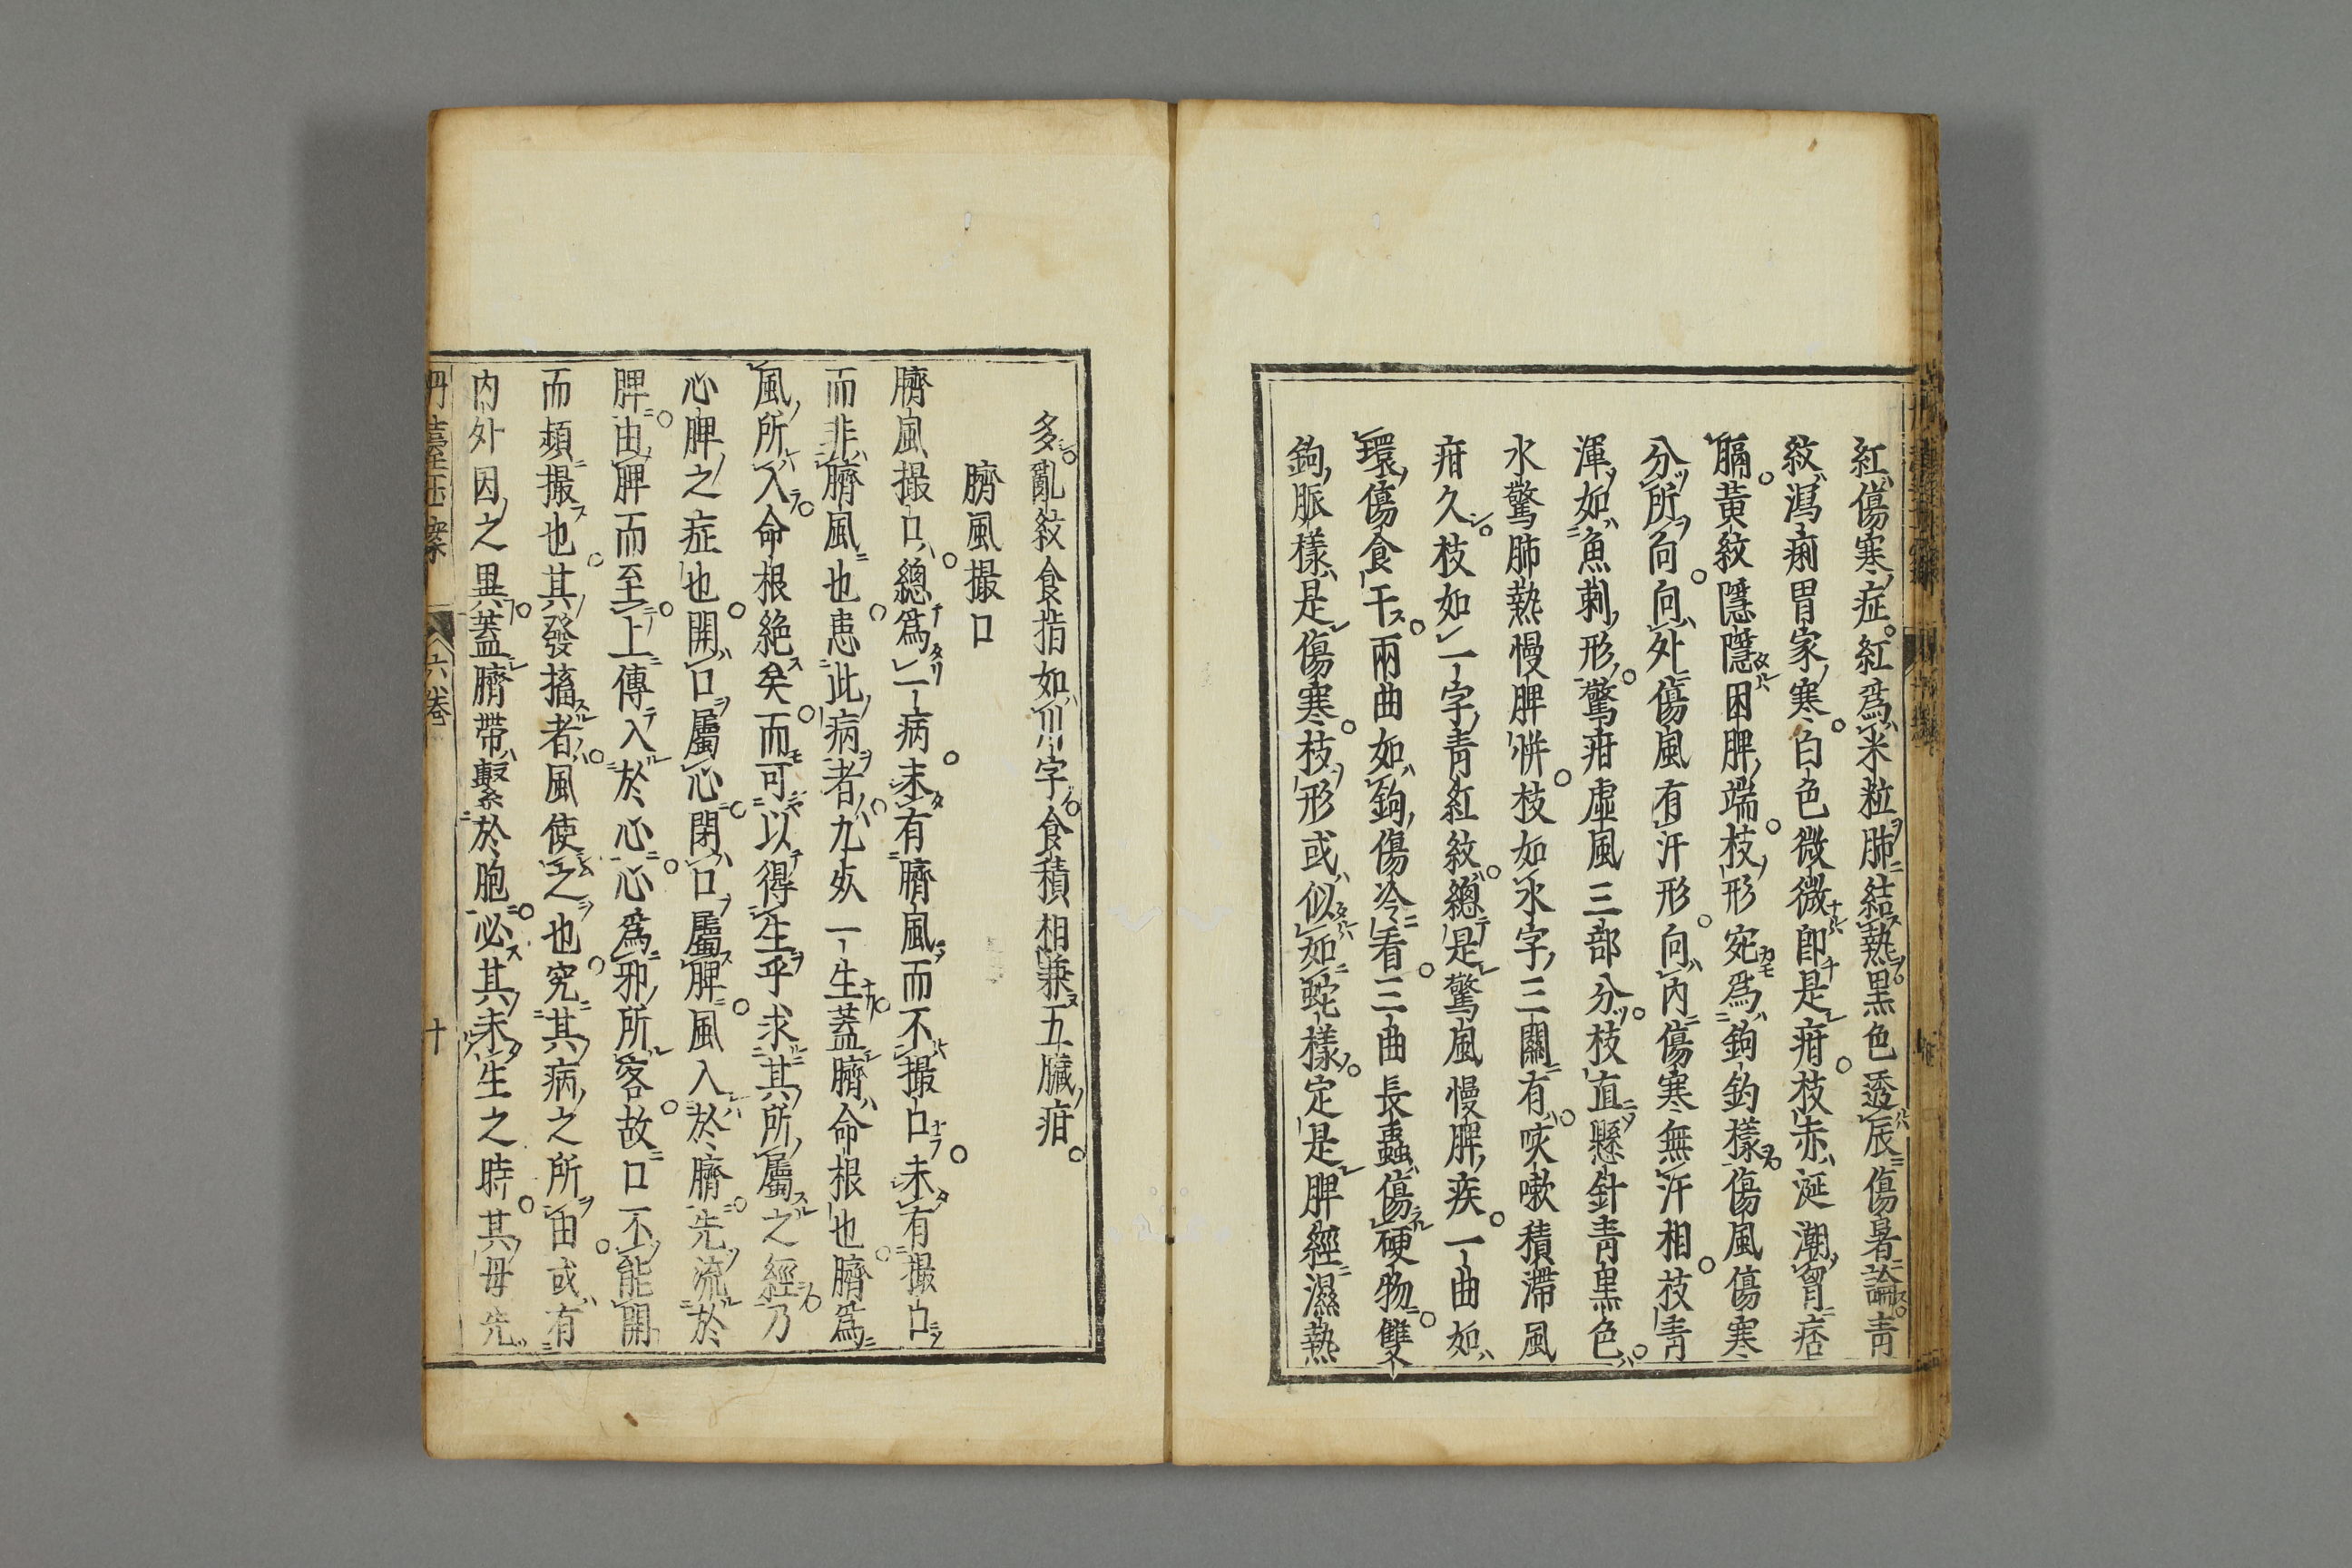 紅傷寒症紅爲米粒肺結熱黒色透辰傷暑論青
紋瀉痢胃家寒白色微微卽是疳枝赤涎潮胷痞
膈黄紋隱隱困脾端枝形宛爲鉤鈎樣傷風傷寒
分所向向外傷風有汗形向內傷寒無汗相枝青
渾如魚刺形驚疳虛風三部分枝直懸針青黒色
水驚肺熱慢脾併枝如水字三關有咳嗽積滯風
疳久枝如一字青紅紋總是驚風慢脾疾一曲如
環傷食干兩曲如鉤傷冷看三曲長蟲傷硬物雙
鉤脈樣是傷寒枝形或似如蛇樣定是脾經濕熱
多亂紋食指如川字食積相兼五臟疳
臍風撮口
臍風撮口總爲一病未有臍風而不撮口未有撮口
而非臍風也患此病者九死一生蓋臍命根也臍爲
風所入命根絶矣而可以得生乎求其所屬之經乃
心脾之症也開口屬心閉口屬脾風入於臍先流於
脾由脾而至上傳入於心心爲邪所客故口不能開
而頻撮也其發搐者風使之也究其病之所由或有
内外因之異蓋臍帶繫於胞必其未生之時其母先
丹臺玉案
六卷
十